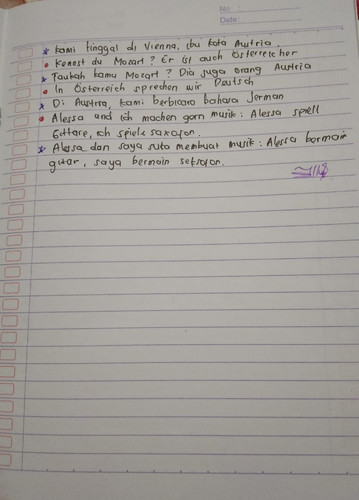 No :
Date :
* Kami tinggal di Vienna, ibu kota Austria.
• Kenest du Mozart? Er ist auch Österreicher
* Taukah kamu Mozart? Dia juga orang Austria
• In Österreich sprechen wir Deutsch
* Di Austria, kami berbicara bahasa Jerman
• Alessa und ich machen gern musik: Alessa spiell
Gittare, ich spiele saxofon.
* Alessa dan saya suka membuat musik: Alessa bermain
gitar, saya bermain seksofon.